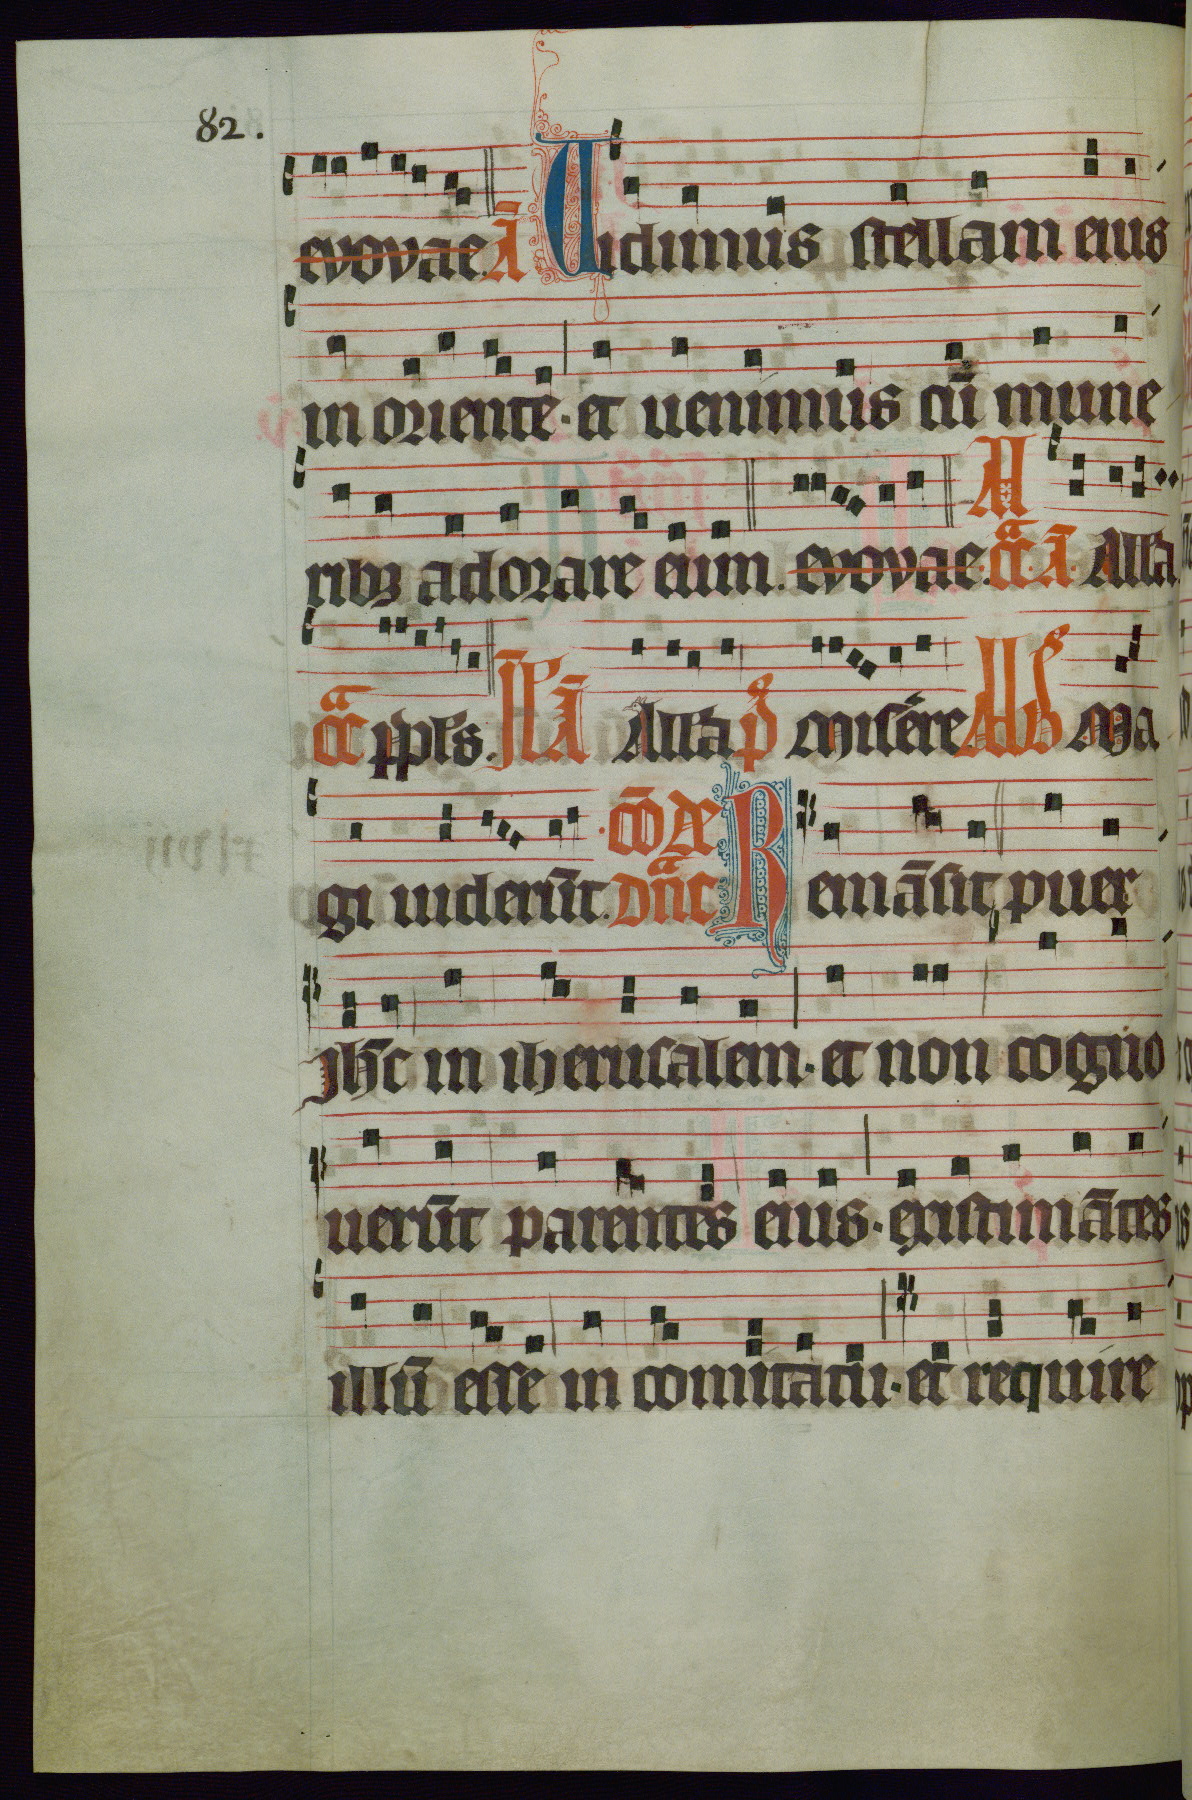 82.
evovae. Ā Vidimus stellam eius
in oriente · et uenimus cū mune
ribꝫ adorare eum. evovae. Ā Alla
ppls. Ā Alla p̄ miserere Ma
gi uiderūt. Dn̄c Remāsit puer
Ihc in iherusalem · et non cogno
uerūt parentes eius · existimātes
illū esse in comitatu · et require